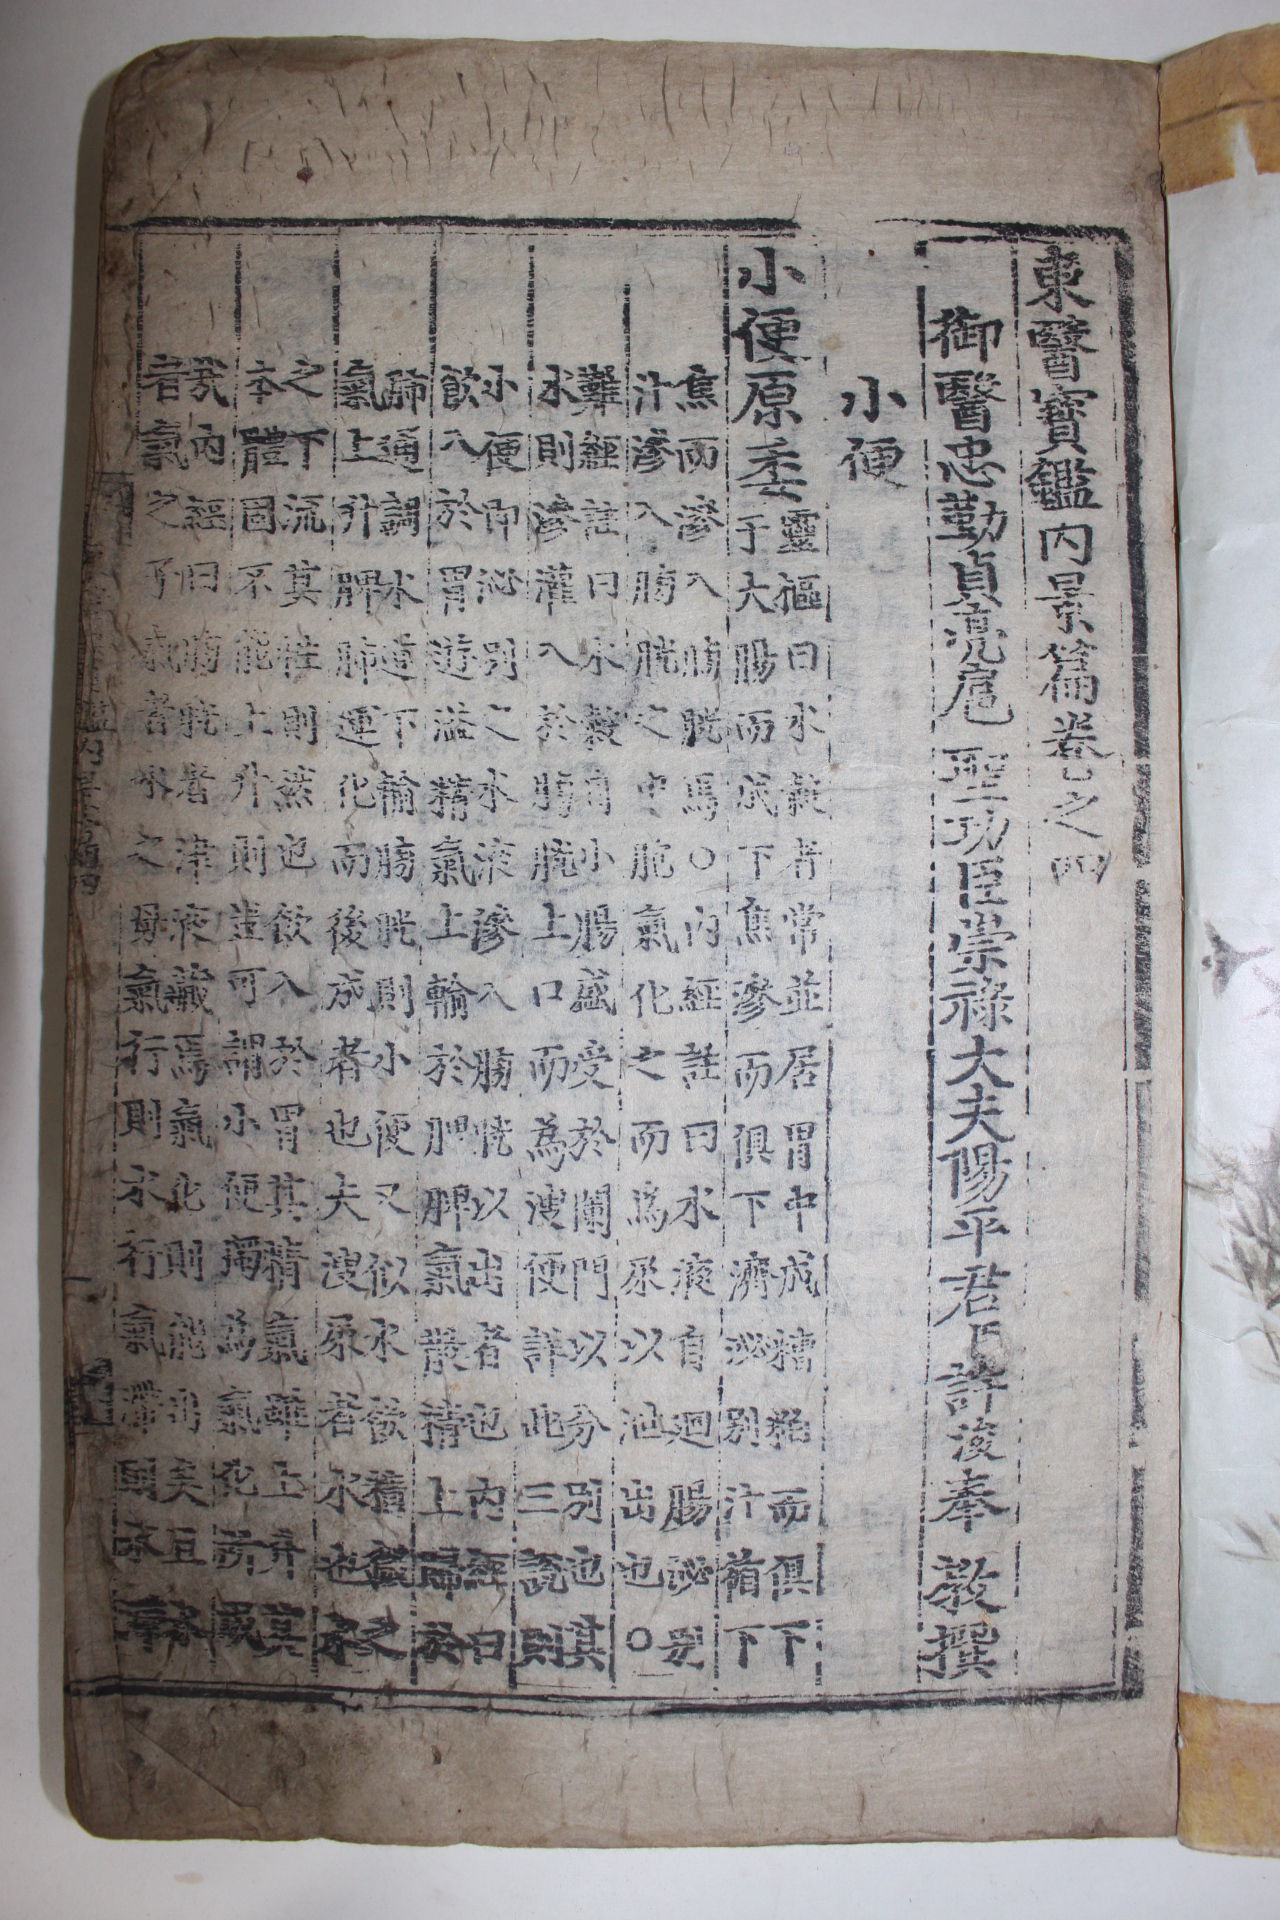 東醫寶鑑內景篇卷之四
御醫忠勤貞亮扈 聖功臣崇祿大夫陽平君臣許浚奉 敎撰
小便
小便原委
靈樞曰水穀者常並居胃中成糟粕而俱下
于大腸而成下焦滲而俱下濟泌別汁循下
焦而滲入膀胱焉○內經註曰水液自迴腸泌別
汁滲入膀胱之中胞氣化之而爲尿以泄出也○
難經註曰水穀自小腸盛受於闌門以分別也其
水則滲灌入於膀胱上口而為溲便詳此三說則
小便卽泌別之水液滲入膀胱以出者也內經曰
飮入於胃遊溢精氣上輸於脾脾氣散精上歸於
肺通調水道下輸膀胱則小便又似水飮積藏之
氣上升脾肺運化而後成者也夫溲尿者水也水
之下流其性則然也飮入於胃其精氣雖上升其
本體固不能上升則豈可謂小便獨為氣化所成
哉內經曰膀胱者津液藏焉氣化則能出矣且水
者氣之子氣者水之母氣行則水行氣滯則水滯